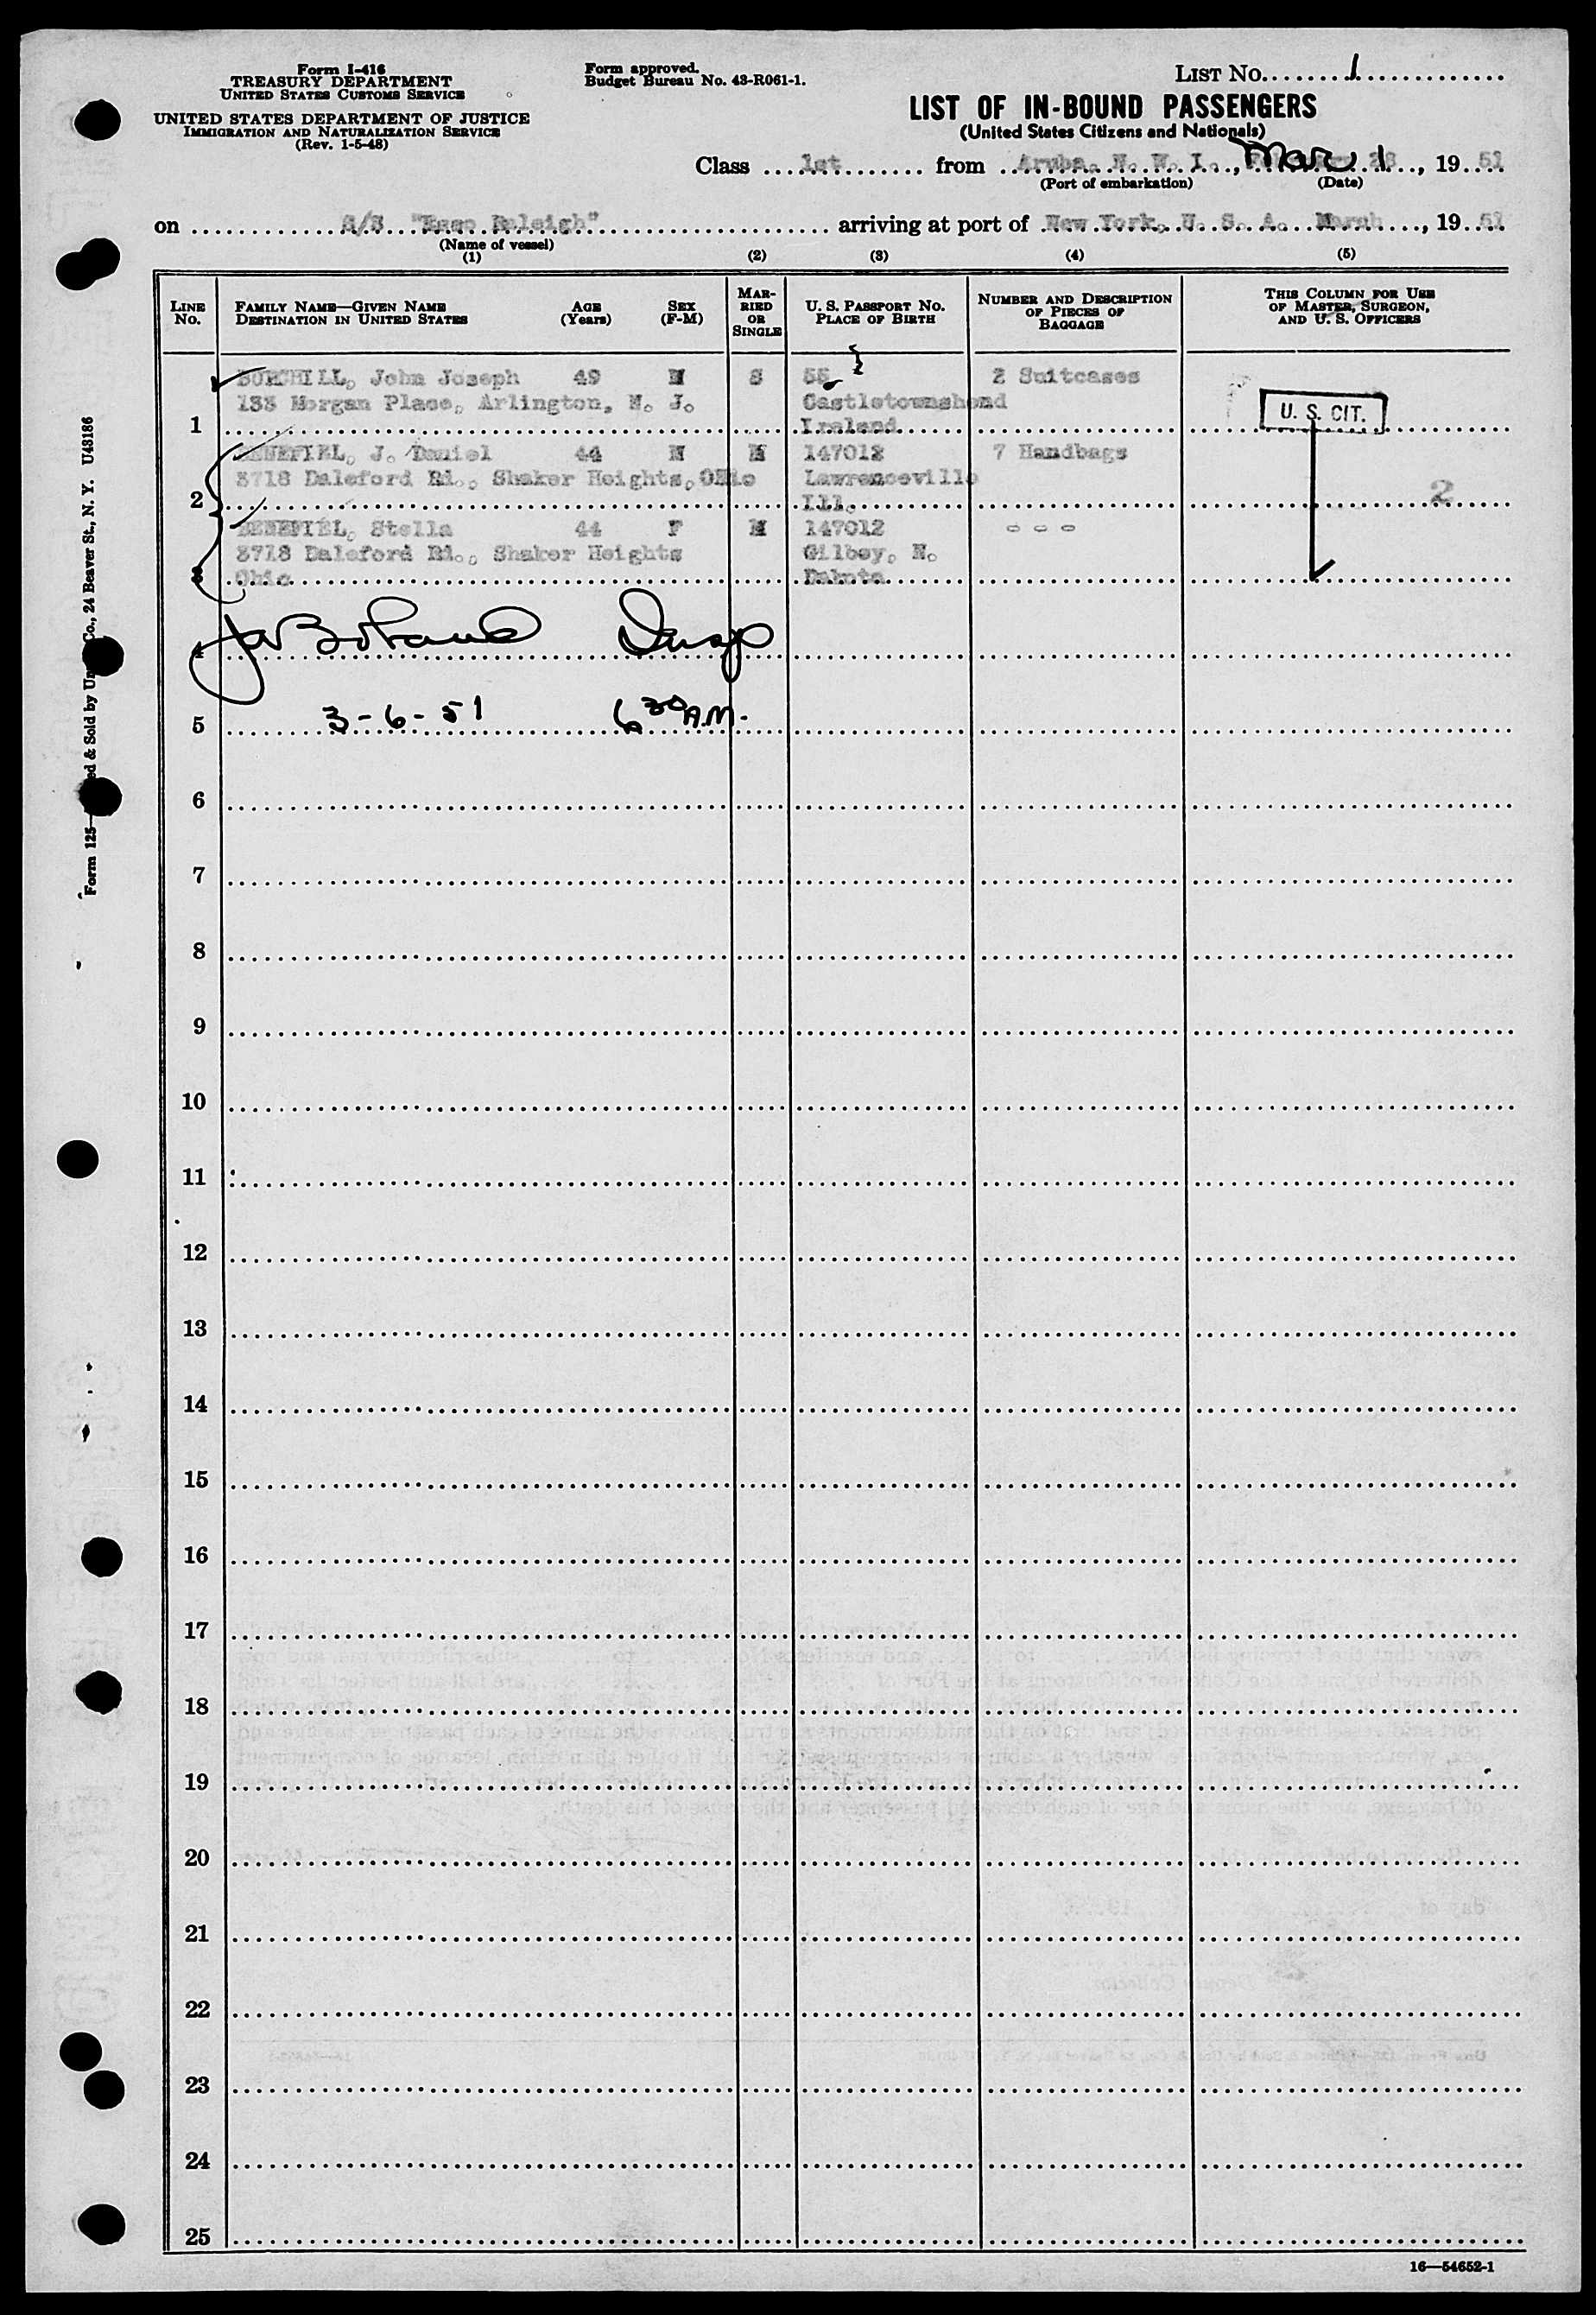 Form I-416
TREASURY DEPARTMENT
UNITED STATES CUSTOMS SERVICE
UNITED STATES DEPARTMENT OF JUSTICE
IMMIGRATION AND NATURALIZATION SERVICE
(Rev. 1-5-48)
Form approved.
Budget Bureau No. 43-R061-1.
LIST NO. 1
LIST OF IN-BOUND PASSENGERS
(United States Citizens and Nationals)
Class 1st from Aruba, N. W. I., Mar 1, 19 51
(Port of embarkation) (Date)
on S/S "Esso Raleigh" arriving at port of New York, U. S. A. March, 19 51
(Name of vessel)
(1) (2) (3) (4) (5)
LINE NO. FAMILY NAME—GIVEN NAME DESTINATION IN UNITED STATES AGE (Years) SEX (F-M) MARRIED OR SINGLE U. S. PASSPORT NO. PLACE OF BIRTH NUMBER AND DESCRIPTION OF PIECES OF BAGGAGE THIS COLUMN FOR USE OF MASTER, SURGEON, AND U. S. OFFICERS
BURCHILL, John Joseph 49 M S 55 2 Suitcases
133 Morgan Place, Arlington, N. J. Castletownshend
1 Ireland U. S. CIT.
BENEFIEL, J. Daniel 44 M M 147012 7 Handbags
3718 Daleford Rd., Shaker Heights, Ohio Lawrenceville
2 Ill. 2
BENEFIEL, Stella 44 F M 147012 - - -
3718 Daleford Rd., Shaker Heights Gilbey, N.
3 Ohio Dakota
4 Insp
5 3-6-51 6 30 A.M.
6
7
8
9
10
11
12
13
14
15
16
17
18
19
20
21
22
23
24
25
16—54652-1
Form 125— ed & Sold by Un Co., 24 Beaver St., N. Y. U48186